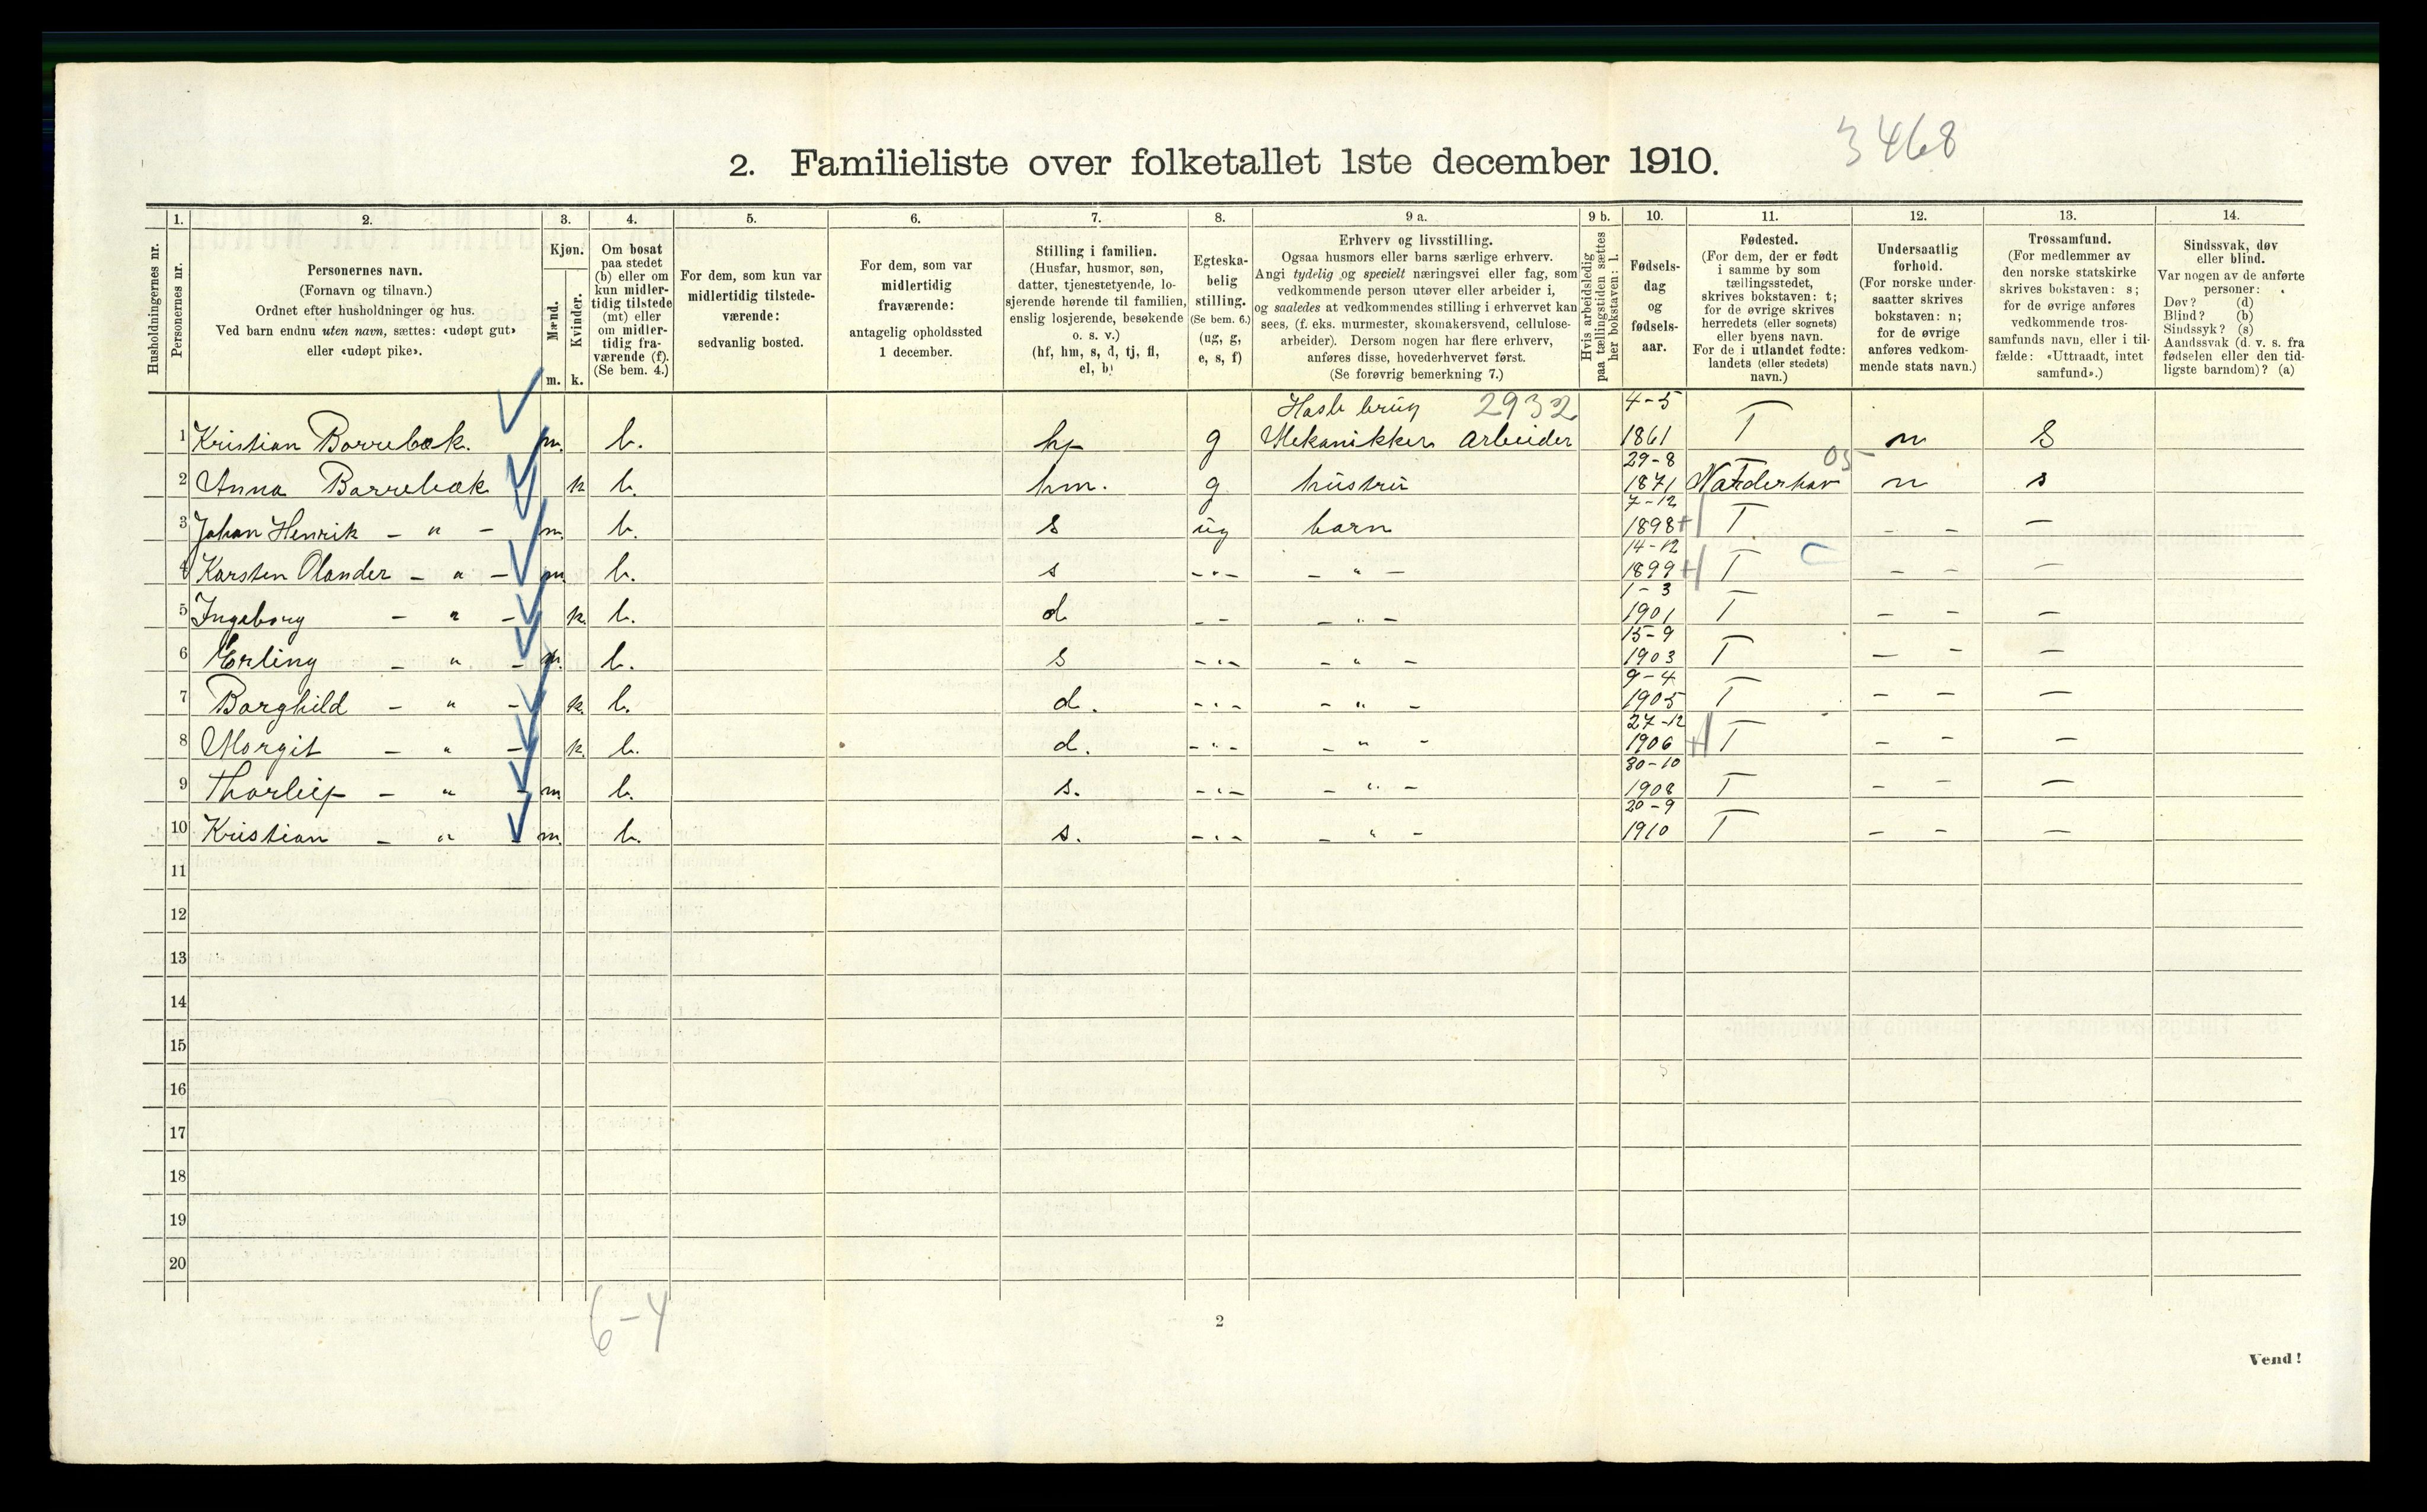 3468
2. Familieliste over folketallet 1ste december 1910.
Husholdningernes nr.
1. Personernes nr.
2. Personernes navn.
(Fornavn og tilnavn.)
Ordnet efter husholdninger og hus.
Ved barn endnu uten navn, sættes: «udøpt gut»
eller «udøpt pike».
3. Kjøn.
Mænd. m.
Kvinder. k.
4. Om bosat
paa stedet
(b) eller om
kun midler-
tidig tilstede
(mt) eller
om midler-
tidig fra-
værende (f).
(Se bem. 4.)
5. For dem, som kun var
midlertidig tilstede-
værende:
sedvanlig bosted.
6. For dem, som var
midlertidig
fraværende:
antagelig opholdssted
1 december.
7. Stilling i familien.
(Husfar, husmor, søn,
datter, tjenestetyende, lo-
sjerende hørende til familien,
enslig losjerende, besøkende
o. s. v.)
(hf, hm, s, d, tj, fl,
el, b)
8. Egteska-
belig
stilling.
(Se bem. 6.)
(ug, g,
e, s, f)
9 a. Erhverv og livsstilling.
Ogsaa husmors eller barns særlige erhverv.
Angi tydelig og specielt næringsvei eller fag, som
vedkommende person utøver eller arbeider i,
og saaledes at vedkommendes stilling i erhvervet kan
sees, (f. eks. murmester, skomakersvend, cellulose-
arbeider). Dersom nogen har flere erhverv,
anføres disse, hovederhvervet først.
(Se forøvrig bemerkning 7.)
9 b. Hvis arbeidsledig
paa tællingstiden sættes
her bokstaven: l.
10. Fødsels-
dag
og
fødsels-
aar.
11. Fødested.
(For dem, der er født
i samme by som
tællingsstedet,
skrives bokstaven: t;
for de øvrige skrives
herredets (eller sognets)
eller byens navn.
For de i utlandet fødte:
landets (eller stedets)
navn.)
12. Undersaatlig
forhold.
(For norske under-
saatter skrives
bokstaven: n;
for de øvrige
anføres vedkom-
mende stats navn.)
13. Trossamfund.
(For medlemmer av
den norske statskirke
skrives bokstaven: s;
for de øvrige anføres
vedkommende tros-
samfunds navn, eller i til-
fælde: «Uttraadt, intet
samfund».)
14. Sindssvak, døv
eller blind.
Var nogen av de anførte
personer:
Døv? (d)
Blind? (b)
Sindssyk? (s)
Aandssvak (d. v. s. fra
fødselen eller den tid-
ligste barndom)? (a)
brug 2932 4-5
1 Kristian Borrebæk. m. b. hf g Mekanikker Arbeider 1861 T n S
29-8 05
2 Anna Borrebæk k b. hm. g hustru 1871 n s
7-12
3 Johan Henrik - " - m. b. s ug barn 1898 T - - -
14-12
4 Karsten Olander - " - m. b. s - " - - " - 1899 T - - -
1-3
5 Ingeborg - " - k. b. d - - - " - 1901 T - - -
15-9
6 Erling - " - m. b. s - " - - " - 1903 T - - -
9-4
7 Borghild - " - k. b. d. - " - - " - 1905 T - - -
27-12
8 Morgit - " - k. b. d. - " - - " - 1906 T - - -
30-10
9 Thorleif - " - m b. s. - " - - " - 1908 T - - -
20-9
10 Kristian - " m. b. s. - " - - " - 1910 T - - -
11
12
13
14
15
16
17
18
19
20
6-4
2
Vend!